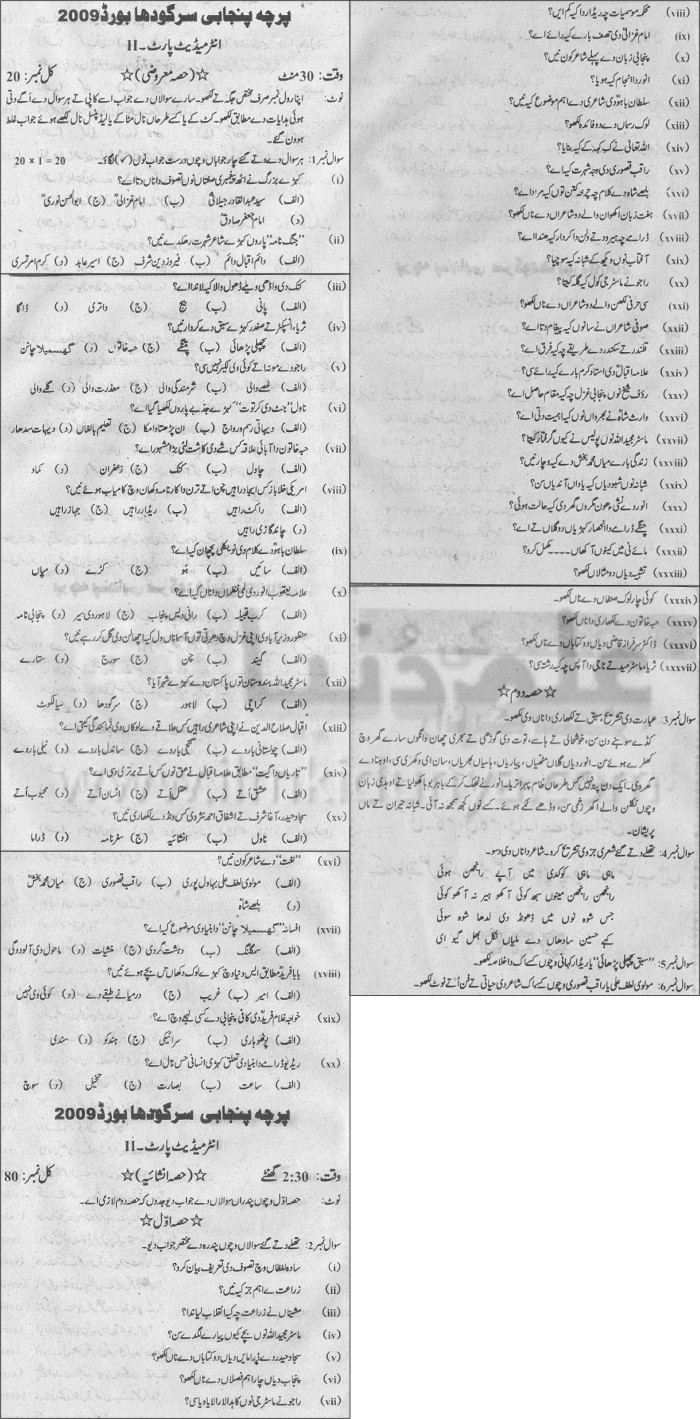 پرچہ پنجابی سرگودھا بورڈ 2009
انٹرمیڈیٹ پارٹ۔II
وقت: 30 منٹ ☆(حصہ معروضی)☆ کل نمبر: 20
نوٹ: اپنا رول نمبر صرف مختص جگہ تے لکھو۔ سارے سوالاں دے جواب ایسے کاپی تے ہر سوال دے اگے دتی
ہوئی ہدایات دے مطابق لکھو۔ کٹ کے یا کسے طرحاں نال مٹا کے یا لیڈ پنسل نال لکھے ہوئے جواب غلط
ہوون گے۔
سوال نمبر1: ہر سوال دے دتے گئے چار جواباں وچوں درست جواب نوں (✓) لگاؤ۔ 20 × 1 = 20
(i) کہڑے بزرگ نے اٹھ پیغمبری صفتاں نوں تصوف دا ناں دتا اے؟
(الف) سید عبدالقادر جیلانیؒ (ب) امام غزالیؒ (ج) ابوالحسن نوریؒ
(د) امام جعفر صادقؒ
(ii) "جنگ نامہ" پاروں کہڑے شاعر شہرت رکھدے نیں؟
(الف) دائم اقبال دائم (ب) فیروز دین شرف (ج) اسیر عابد (د) کرم امرتسری
(iii) کنک دی واڈھی ویلے ڈھول والا کیہ لاندا اے؟
(الف) پانی (ب) بیج (ج) واتری (د) ڈاگا
(iv) ثریا، انسپکٹر تے صفدر کہڑے سبق دے کردار نیں؟
(الف) پچھلی پڑھائی (ب) چنگے (ج) حبہ خاتون (د) گھسمیلا چانن
(v) راجو دے مونہا تے کوئی دی لکیر نہیں سی؟
(الف) غصے والی (ب) شرمندگی والی (ج) معذرت والی (د) گلے والی
(vi) ناول "جٹ دی کرتوت" کہڑے جذبے پاروں لکھیا گیا اے؟
(الف) دیہاتی رسم و رواج (ب) ان پڑھتا دا مکا (ج) تعلیم بالغاں (د) دیہات سدھار
(vii) حبہ خاتون دا آبائی علاقہ کس شے دی کاشت لئی بڑا مشہور اے؟
(الف) چاول (ب) کنک (ج) زعفران (د) کماد
(viii) امریکی خلا باز کس ایجاد راہیں چن اتے ترن دا کارنامہ وکھان وچ کامیاب ہوئے نیں؟
(الف) راکٹ راہیں (ب) ریڈار راہیں (ج) جہاز راہیں
(د) چاند گاڑی راہیں
(ix) سلطان باہوؒ دے کلام دی نویکلی پچھان کیہ اے؟
(الف) سائیں (ب) ہُو (ج) کڑے (د) میاں
(x) علامہ یعقوب انور دی لمی نظماں دا ناں کیا اے؟
(الف) کرب قبیلہ (ب) رانی دیس پنجاب (ج) لاہور دی سیر (د) پنجابی نامہ
(xi) منظور وزیر آبادی اپنی غزل وچ دھرتی توں آسماناں ول کیہ اچھالن دی گل کر رہے نیں؟
(الف) گیند (ب) چن (ج) سورج (د) ستارے
(xii) ماسٹر مجید اللہ ہندوستان توں پاکستان دے کہڑے شہر آیا؟
(الف) کراچی (ب) لاہور (ج) سرگودھا (د) سیالکوٹ
(xiii) اقبال صلاح الدین نے اپنی شاعری راہیں کس علاقے دے لوکاں دی نمائندگی کیتی اے؟
(الف) چولستانی بار دے (ب) گنجی بار دے (ج) ساندل بار دے (د) نیلی بار دے
(xiv) "تاریاں دا گیت" مطابق علامہ اقبال نے عقل نوں کس اتے برتری دی اے؟
(الف) عشق اُتے (ب) عقل اُتے (ج) انسان اُتے (د) محبوب اُتے
(xv) سجاد حیدر، آغا شرف تے اشفاق احمد نثر دی کس ونڈ دے لکھاری نیں؟
(الف) ناول (ب) انشائیہ (ج) سفرنامہ (د) ڈراما
(xvi) "لغت" دے شاعر کون نیں؟
(الف) مولوی لطف علی بہاولپوری (ب) راقب قصوری (ج) میاں محمد بخشؒ
(د) بلھے شاہؒ
(xvii) افسانہ "گھسمیلا چانن" دا بنیادی موضوع کیا اے؟
(الف) سمگلنگ (ب) دہشت گردی (ج) منشیات (د) ماحول دی آلودگی
(xviii) بابا فریدؒ مطابق ایس دنیا وچ کہڑے لوک دکھاں توں بچے ہوئے نیں؟
(الف) امیر (ب) غریب (ج) درمیانے طبقے دے (د) کوئی وی نہیں
(xix) خواجہ غلام فریدؒ دی کافی پنجابی دے کس لہجے وچ اے؟
(الف) پوٹھوہاری (ب) سرائیکی (ج) ہندکو (د) سندی
(xx) ریڈیو ڈرامے دا بنیادی تعلق کہڑی انسانی حس نال اے؟
(الف) سماعت (ب) بصارت (ج) تخیل (د) سوچ
پرچہ پنجابی سرگودھا بورڈ 2009
انٹرمیڈیٹ پارٹ۔II
وقت: 2:30 گھنٹے ☆(حصہ انشائیہ)☆ کل نمبر: 80
نوٹ: حصہ اوّل وچوں پندراں سوالاں دے جواب دیو جدوں کہ حصہ دوم لازمی اے۔
☆حصہ اوّل☆
سوال نمبر2: تھلے دتے گئے سوالاں وچوں پندرہ دے مختصر جواب دیو۔
(i) سادہ لفظاں وچ تصوف دی تعریف بیان کرو؟
(ii) زراعت دے اہم جز کیہ نیں؟
(iii) مشیناں نے زراعت چہ کیہ انقلاب لیاندا؟
(iv) ماسٹر مجید اللہ نوں بچے کیوں پیارے لگدے سن؟
(v) سجاد حیدر دے ڈرامایں دیاں دو کتاباں دے ناں لکھو؟
(vi) پنجاب دیاں چار اہم فصلاں دے ناں لکھو؟
(vii) راجو نے ماسٹر جی نوں کاہدا لارا لایا ویا سی؟
(viii) محکمہ موسمیات چہ ریڈار دا کیہ کم ایں؟
(ix) امام غزالیؒ دی تصف بارے کیہ رائے اے؟
(x) پنجابی زبان دے پہلے شاعر کون نیں؟
(xi) انور دا انجام کیہ ہویا؟
(xii) سلطان باہوؒ دی شاعری دے اہم موضوع کیہ نیں؟
(xiii) لوک رسماں دے دو فائدے لکھو؟
(xiv) اللہ تعالیٰ نے کُن کہہ کے کیہ بنایا؟
(xv) راقب قصوری دی وجہ شہرت کیہ اے؟
(xvi) بلھے شاہ دے کلام چہ چرخہ کتن توں کیہ مراد اے؟
(xvii) ہفت زبان اکھوان والے دو شاعراں دے ناں لکھو؟
(xviii) ڈرامے چہ ہیرو تے ولن دا کردار کیہ ہندا اے؟
(xix) آفتاب نوں ویکھ کے شبانہ کیہ سوچیا؟
(xx) راجو نے ماسٹر جی کول کیہ گلہ کیتا؟
(xxi) سی حرفی لکھن والے دو شاعراں دے ناں لکھو؟
(xxii) صوفی شاعراں نے سانوں کیہ پیغام دتا اے؟
(xxiii) قلندر تے سکندر دے طریقے چہ کیہ فرق اے؟
(xxiv) علامہ اقبالؒ دی استاد کرم بارے کیہ رائے سی؟
(xxv) رؤف شیخ نوں پنجابی غزل چہ کیہ مقام حاصل اے؟
(xxvi) وارث شاہؒ نے بھرواں نوں کیہ اہمیت دتی اے؟
(xxvii) ماسٹر مجید اللہ نوں پولیس نے کیوں گرفتار کیتا؟
(xxviii) زندگی بارے میاں محمد بخش دے کیہ وچار نیں؟
(xxix) شبانہ نوں شہود دیاں کیہ یاداں آندیاں سن؟
(xxx) انور دے نشی ہون مگروں گھر دی کیہ حالت ہوئی؟
(xxxi) چنگے ڈرامے دا انحصار کہڑیاں دو گلاں تے اے؟
(xxxii) مائے نی میں کینوں آکھاں ۔۔۔۔ مکمل کرو؟
(xxxiii) تشبیہ دیاں دو مثالاں لکھو؟
(xxxiv) کوئی چار لوک صنفاں دے ناں لکھو۔
(xxxv) حبہ خاتون دے لکھاری دا ناں لکھو؟
(xxxvi) ڈاکٹر سرفراز قاضی دیاں دو کتاباں دے ناں لکھو؟
(xxxvii) ثریا، ماسٹر مجید تے ناجی دا آپس چہ کیہ رشتہ سی؟
☆حصہ دوم☆
سوال نمبر3: عبارت دی تشریح، سبق تے لکھاری دا ناں وی لکھو۔
کڈے سوہنے دن سن، خوشحالی تے ہاسے، توت دی گوڑھی تے بھری چھاں وانگوں سارے گھر وچ
کھلرے ہوئے سن۔ انور دیاں گلاں مٹھیاں، پیاریاں، ہاسیاں بھریاں، سان ای وکھری سی، اوہنا دے
گھر دی۔ ایک دن پتہ نہیں کس طرحاں نظام پہرا تریا۔ انور نے ٹھک کر کے باہر بوہا کھولیا تے اوہدی زبان
وچوں نکلن والے اکھر زخمی سن، وڈھے ٹکے ہوئے۔ کسے نوں کجھ سمجھ نہ آئی۔ شبانہ حیران تے ماں
پریشان۔
سوال نمبر4: تھلے دتے گئے شعری جز دی تشریح کرو۔ شاعر دا ناں وی دسو۔
ماہی ماہی کوکدی میں آپے رانجھن ہوئی
رانجھن رانجھن مینوں سبھ کوئی آکھو ہیر نہ آکھو کوئی
جس شوہ نوں میں ڈھونڈ دی لدھا شوہ سوئی
کہے حسین سادھاں دے ملیاں نکل بھل گیو ای
سوال نمبر5: "سبق پچھلی پڑھائی" یا ریڈار کہانی وچوں کسے اک دا خلاصہ لکھو۔
سوال نمبر6: مولوی لطف علی یا راقب قصوری وچوں کسے اک شاعر دی حیاتی تے فن اُتے نوٹ لکھو۔